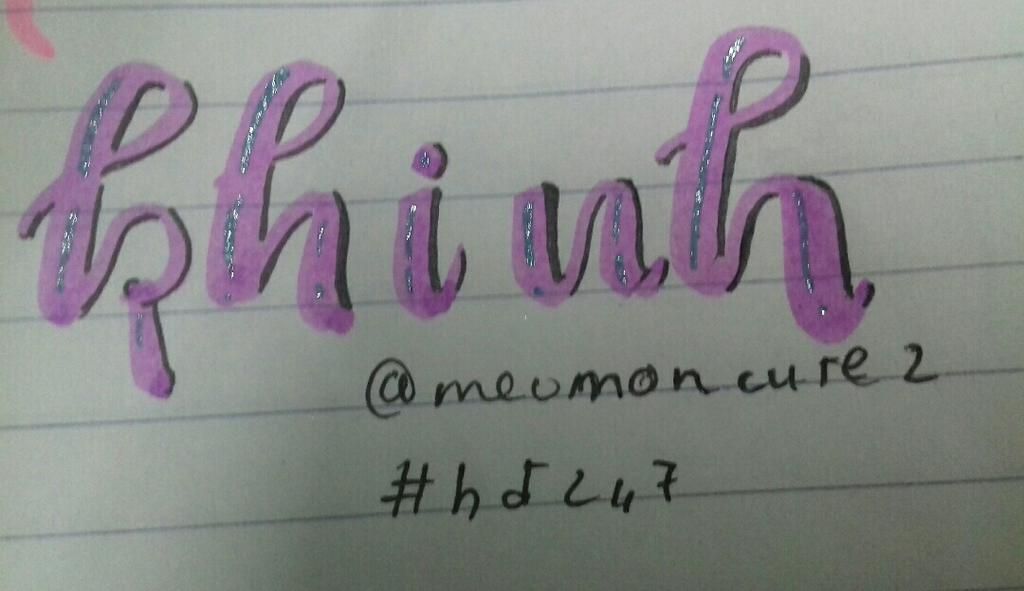 khinh
@meomoncure2
#hdc247